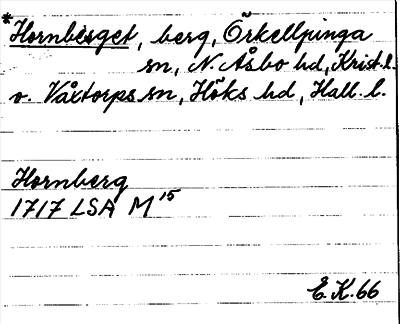 *Hornbèrget, berg, Örkelljunga
sn, N. Åsbo hd, Krist. l.
o. Våxtorps sn, Höks hd, Hall. l.
Hornberg
1717 LSA M 15
E.K. 66